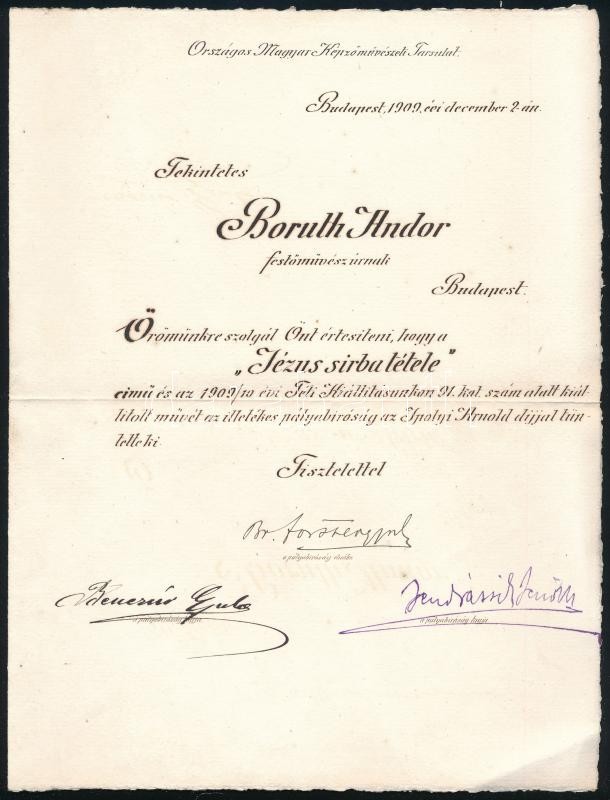 Országos Magyar Képzőművészeti Társulat.
Budapest, 1909. évi december 2-án.
Tekintetes
Boruth Andor
festőművész úrnak
Budapest.
Örömünkre szolgál Önt értesiteni, hogy a
„Jézus sirba tétele"
cimű és az 1909/10 évi Téli Kiállitásunkon 91. kat. szám alatt kiál-
litott művét az illetékes pályabiróság az Ipolyi Arnold dijjal tün-
tette ki.
Tisztelettel
Br. Forster Gyula
a pályabiróság elnöke
Benczúr Gyula
a pályabiróság tagja
Jendrássik Jenő
a pályabiróság tagja